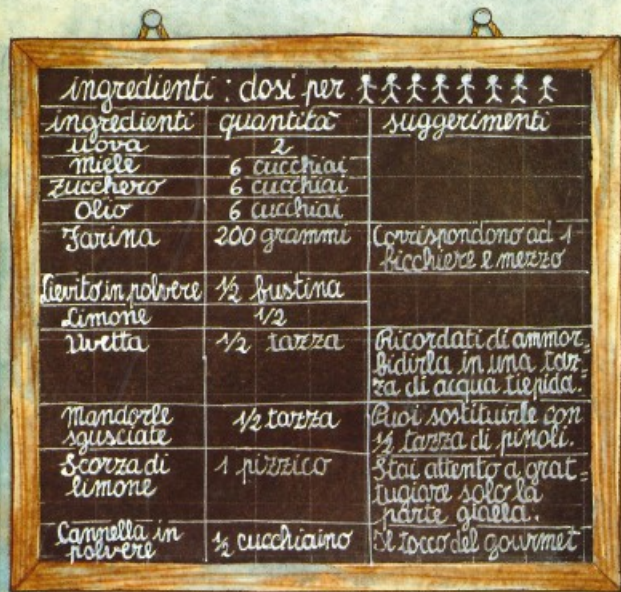 ingredienti : dosi per
ingredienti quantità suggerimenti
uova 2
miele 6 cucchiai
zucchero 6 cucchiai
Olio 6 cucchiai
Farina 200 grammi Corrispondono ad 1
bicchiere e mezzo
Lievito in polvere 1/2 bustina
Limone 1/2
Uvetta 1/2 tazza Ricordati di ammor=
bidirla in una taz=
za di acqua tiepida.
Mandorle 1/2 tazza Puoi sostituirle con
sgusciate 1/2 tazza di pinoli.
Scorza di 1 pizzico Stai attento a grat=
limone tugiare solo la
parte gialla.
Cannella in 1/2 cucchiaino Il tocco del gourmet
polvere